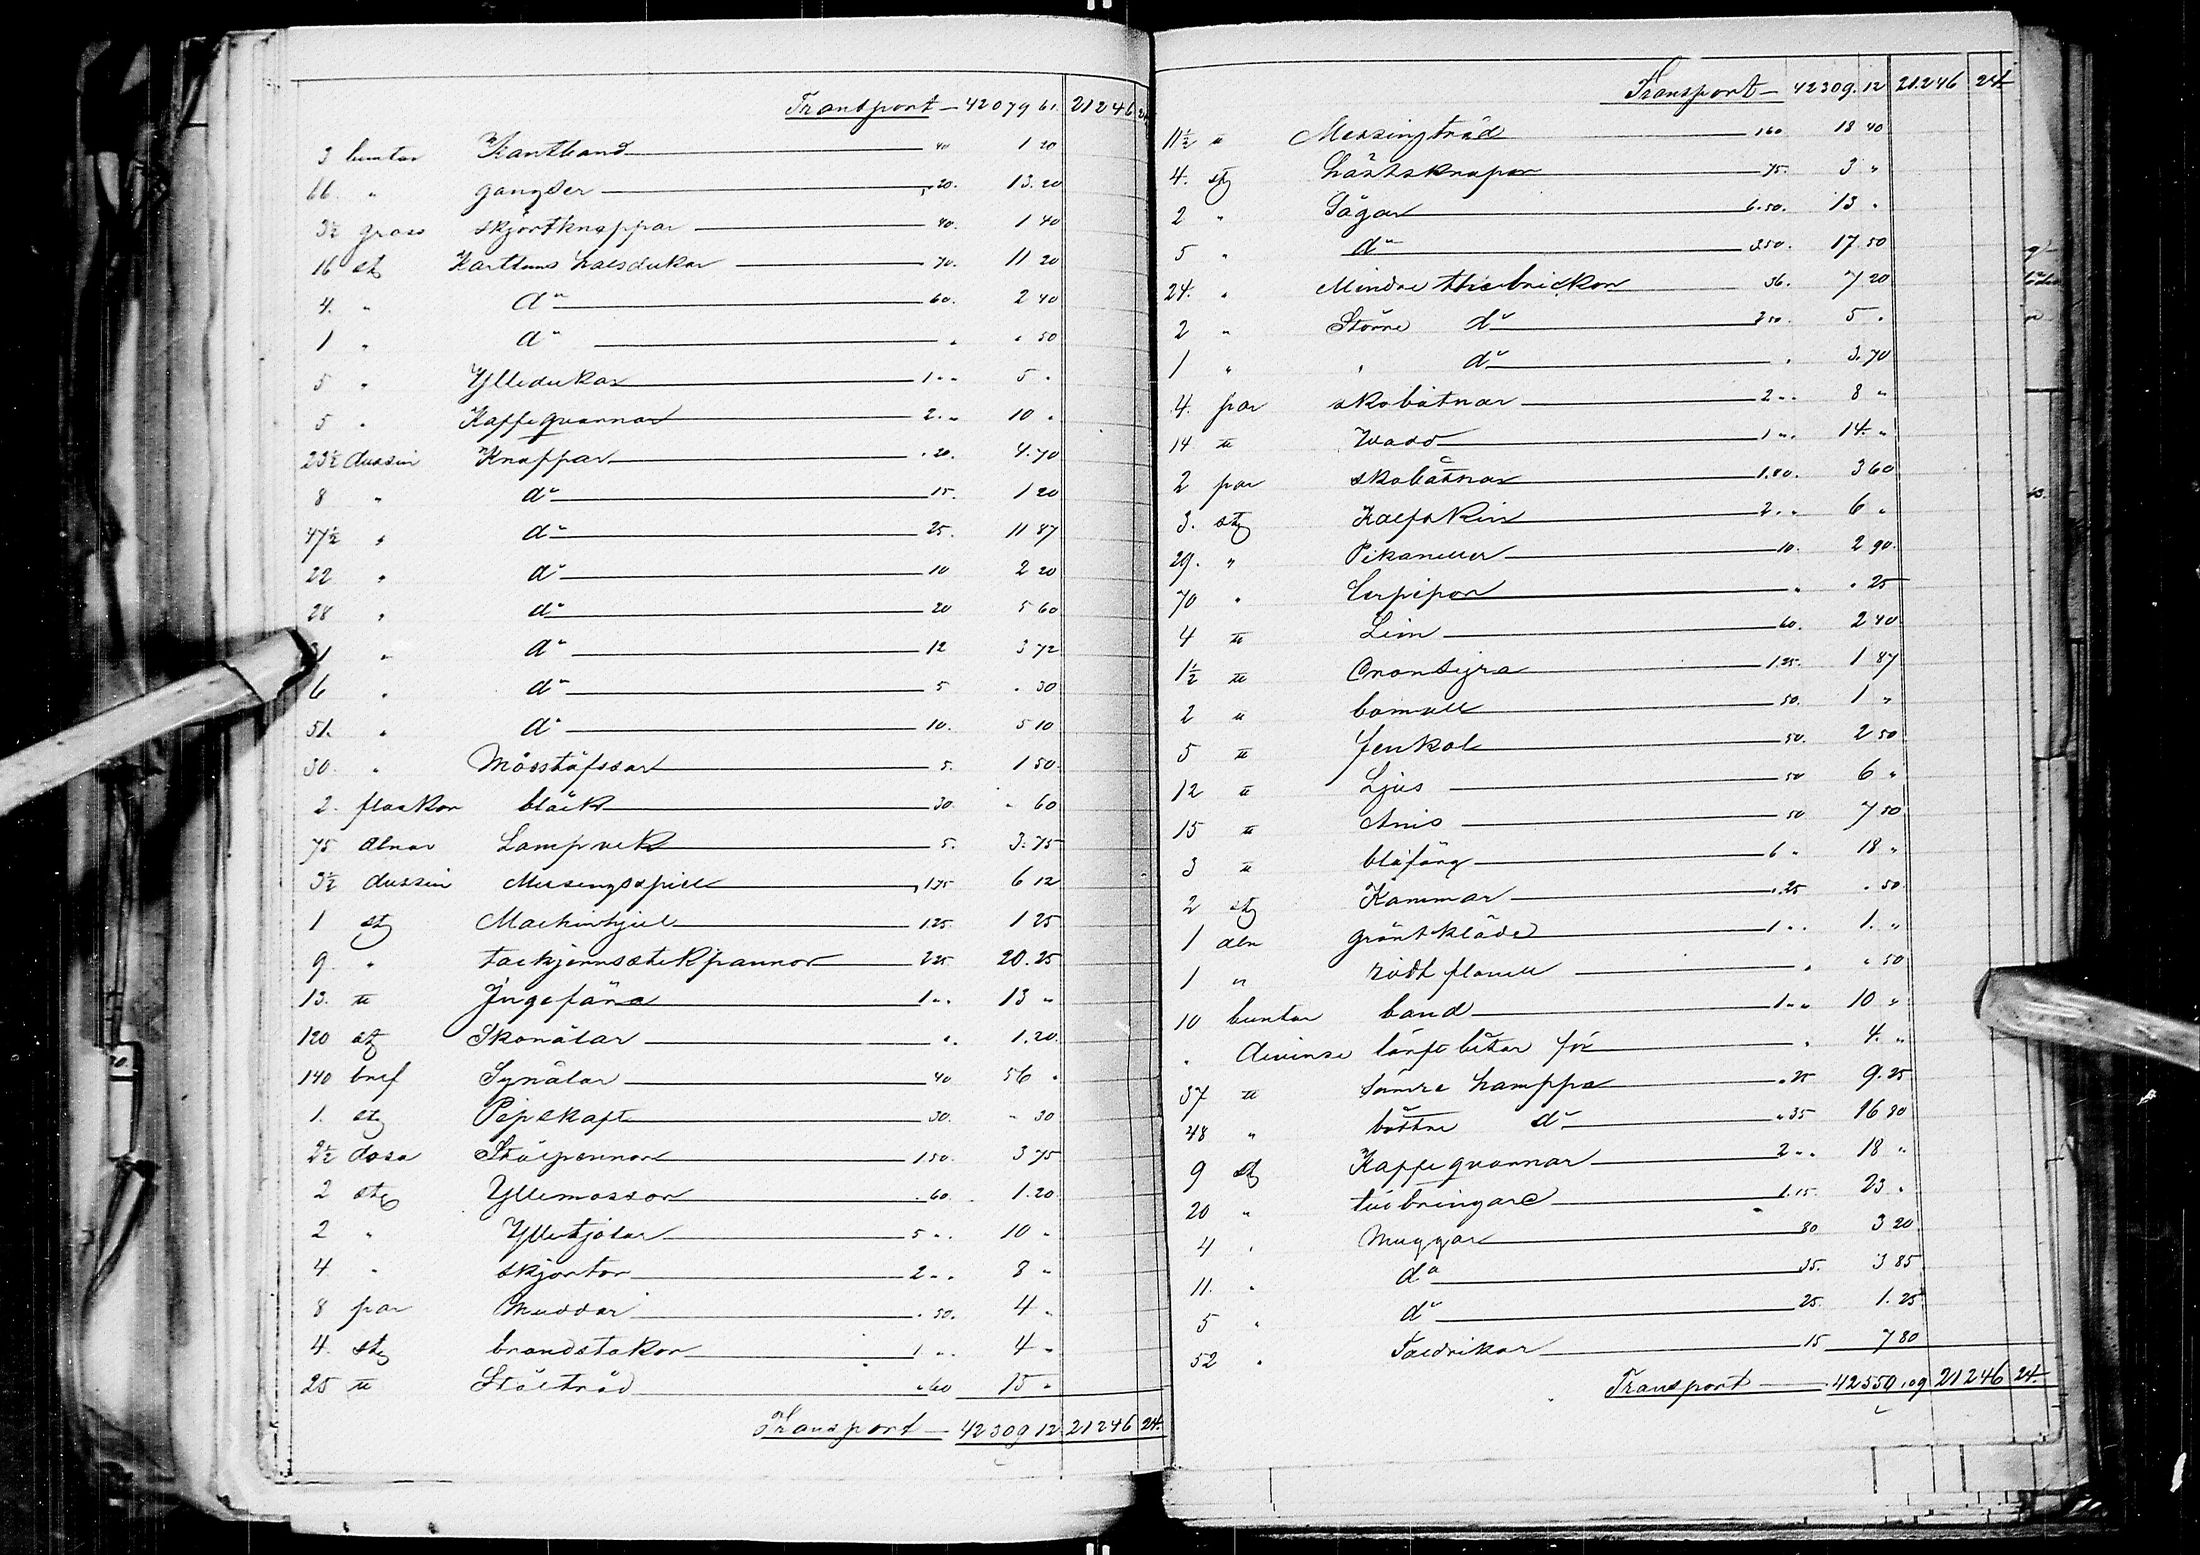 Transport — 42079 61. 21246 24
3 buntar Kantband — 40 1 20
66. " gangder — ,, 20. 13. 20
3½ gross skjortknappar — 40. 1 40
16 st Karttuns halsdukar — 70. 11 20
4. " do — 60. 2 40
1 " do — " " 50
5 " Ylledukar — 1 " " 5 "
5 " Kaffeqvarnar — 2. " 10 "
23½ dussin Knappar — " 20. 4. 70
8 " do — 15. 1 20
47½ " do — 25. 11 87
22 " do — 10 2 20
28 " do — 20 5 60
31 " do — 12 3 72
6 " do — 5 " 30
51. " do — 10. 5 10
30 " Mösstofsar — 5. 1 50
2. flaskor bläck — 30. " 60
75 alnar Lampvek — 5. 3. 75
3½ dussin Messingsspill — 1,75 6 12
1 st Machinhjul — 1.25. 1 25
9 " tackjernsstekpannor — 2 25 20. 25
13. ℔ Ingefära — 1 " " 13 "
120 st Skonålar — ". 1. 20
140 bref Synålar — 40 56 "
1. st Pipskaft — 30. " 30
2½ dosa Stålpennor — 1.50. 3 75
2 st Yllemössor — " 60 1. 20
2 " Ylletjolar — 5 " . 10 "
4 " skjortor — 2 " " 8 "
8 par Muddar — " 50. 4 "
4. st brandstakor — 1 " " 4 "
25 ℔ Ståltråd — " 60 15 "
Transport — 42309 12 21246 24.
Transport — 42309. 12 21.246 24
11½ ℔ Messingtråd — 1 60 18 40
4. st Hästskrapor — 75. 3 "
2 " Sågar — 6. 50. 13 "
5 " do — 3 50. 17 50
24. " Mindre thebrickor — 36. 7 20
2 " Större do — 2 50. 5 "
1 " " do — " 3. 70
4. par skobotnar — 2 " " 8 "
14 ℔ Wadd — 1 " " 14. "
2 par skobotnar — 1. 80. 3 60
3. st Kalfskin — 2 " " 6 "
29. " Pikaneller — 10. 2 90.
70 " Lerpipor — " " 25
4 ℔ Lim — 60. 2 40
1½ ℔ Cronsyra — 1.25. 1 87
2 ℔ bomull — 50. 1 "
5 ℔ fenkol — 50. 2 50
12 ℔ Ljus — 50 6 "
15 ℔ Anis — 50 7 50
3 ℔ blåfärg — 6 " 18 "
2 st Kammar — " 25 " 50
1 aln grönt kläde — 1 " " 1. "
1 " rödt flanell — " " 50
10 buntar band — 1 " " 10 "
" diverse länft bitar för — " 4. "
37 ℔ sämre hamppa — " 25 9. 25
48 " bättre do — " 35 16 80
9 st Kaffeqvarnar — 2 " " 18 "
20 " tillbringare — 1. 15. 23 "
4 " Muggar — 80 3 20
11. " do — 35. 3 85
5 " do — 25. 1. 25
52 " Taldrikar — 15 7 80
Transport — 42550 , 09 21246 24.